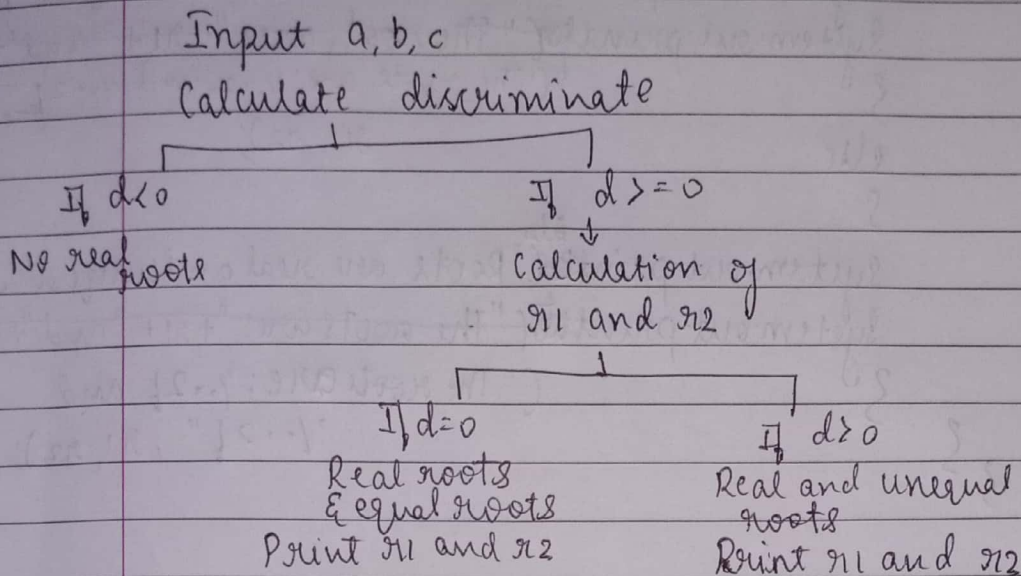 Input a, b, c
Calculate discriminate
If d<0
If d>=0
No real roots
Calculation of
r1 and r2
If d=0
If d>0
Real roots
& equal roots
Print r1 and r2
Real and unequal
roots
Print r1 and r2